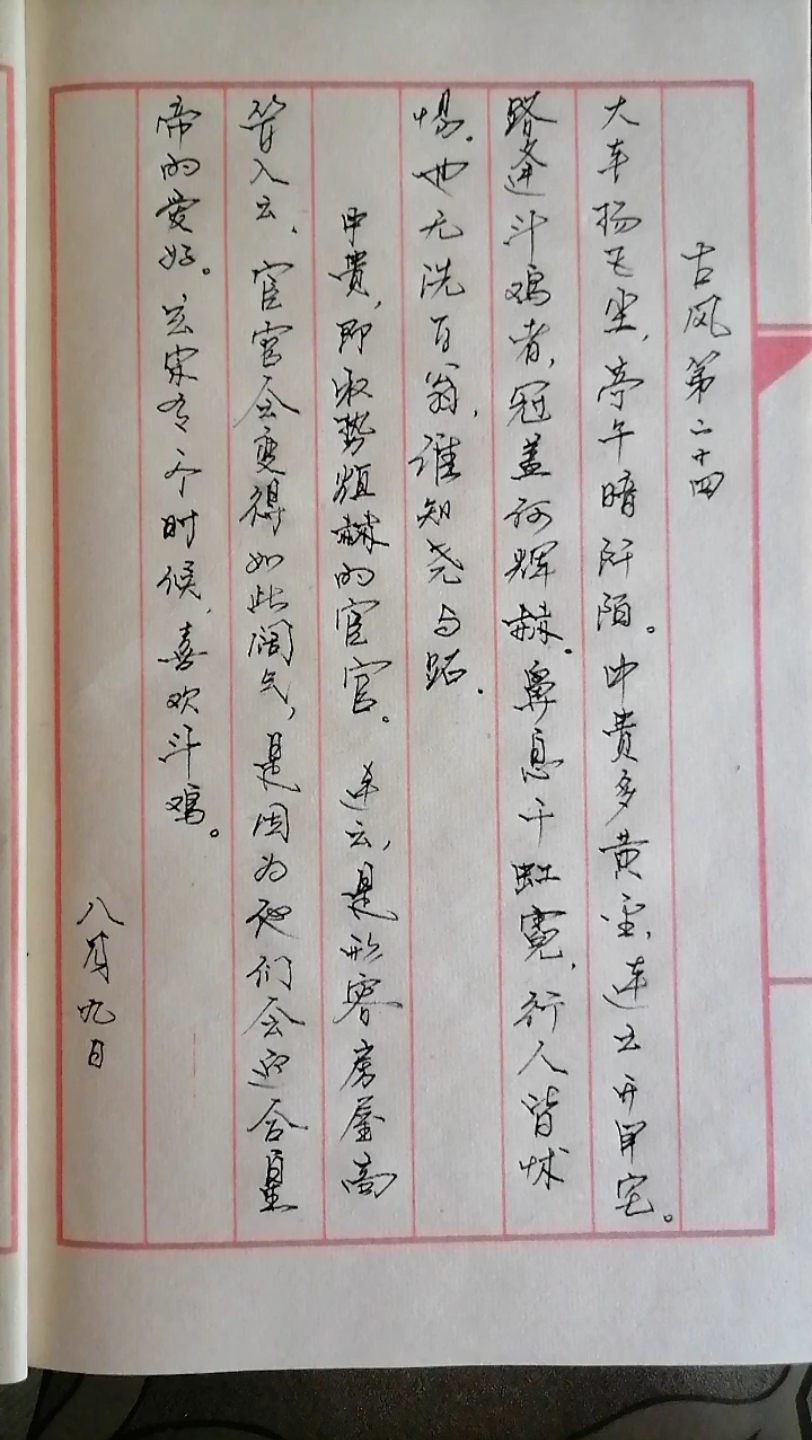 古风第二十四
大车扬飞尘,亭午暗阡陌。中贵多黄金,连云开甲宅。
路逢斗鸡者,冠盖何辉赫。鼻息干虹霓,行人皆怵
惕。世无洗耳翁,谁知尧与跖。
中贵,即权势煊赫的宦官。连云,是形容房屋高
耸入云,宦官会变得如此阔气,是因为他们会迎合皇
帝的爱好。玄宗有个时候,喜欢斗鸡。
八月九日